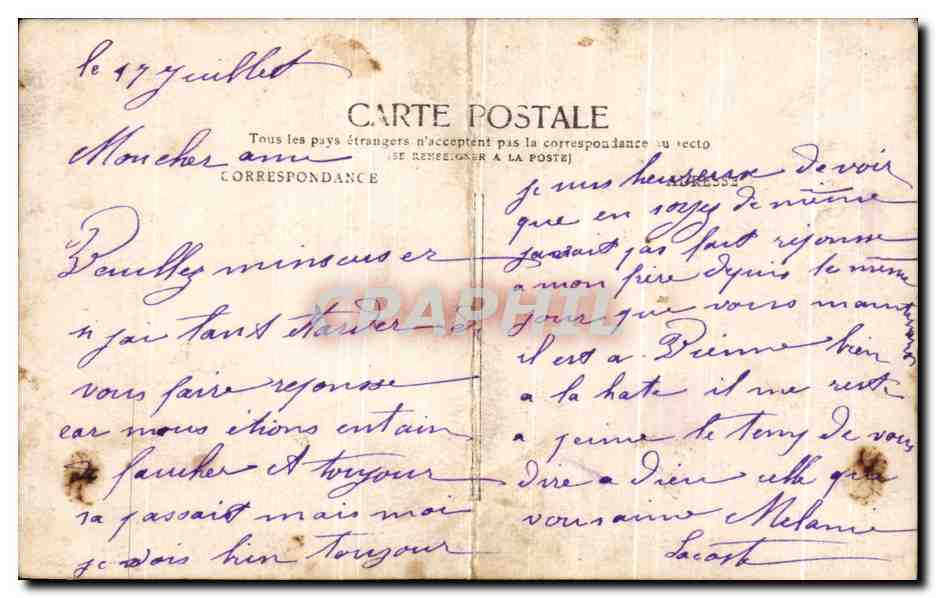 le 17 Juillet
CARTE POSTALE
Tous les pays étrangers n'acceptent pas la correspondance au recto
(SE RENSEIGNER A LA POSTE)
CORRESPONDANCE
ADRESSE
Mon cher ami
Veuillez minscuser
si jai tant etarder de
vous faire reponse
car nous étions entain
de faucher et toujour
sa passait mais moi
je vois bien toujour
je suis heureux de voir
que en soyez de même
javait pas fait réponse
a mon frère depuis le même
jour que vous
il est a Vienne bien
a la hate il me reste
a peine le temp de vous
dire a dieu celle qui
vous aime Melanie
Lacoste
GRAPHIL